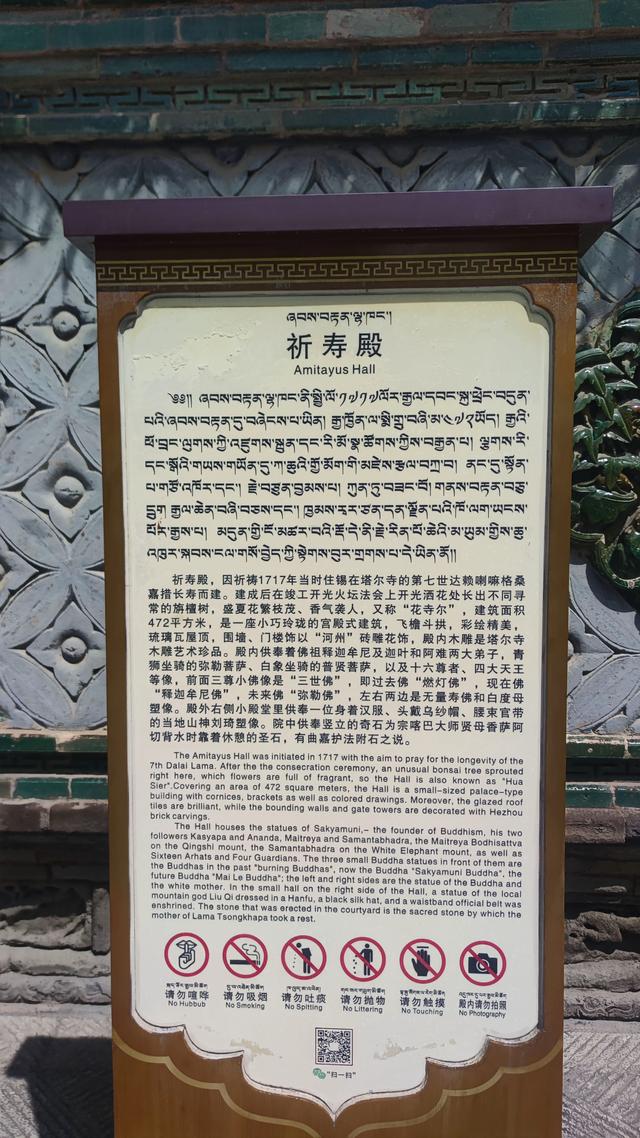 ཞབས་བརྟན་ལྷ་ཁང་།
祈寿殿
Amitayus Hall
༄༅།། ཞབས་བརྟན་ལྷ་ཁང་ནི་སྤྱི་ལོ་༡༧༡༧ལོར་རྒྱལ་དབང་སྐུ་ཕྲེང་བདུན་
པའི་ཞབས་བརྟན་དུ་བཞེངས་པ་ཡིན། རྒྱ་ཁྱོན་ལ་སྨི་གྲུ་བཞི་མ་༤༧༢ཡོད། རྒྱའི་
ཕོ་བྲང་ལུགས་ཀྱི་འཛུགས་སྐྲུན་དང་རི་མོ་སྣ་ཚོགས་ཀྱིས་བརྒྱན་པ། ལྕགས་རི་
དང་སྒོའི་གཡས་གཡོན་དུ་ཀ་ཆུའི་གྱོ་མོག་གི་མཛེས་རྩལ་བཀྲ་བ། ནང་དུ་སྟོན་
པ་གཙོ་འཁོར་དང་། རྗེ་བཙུན་བྱམས་པ། ཀུན་ཏུ་བཟང་པོ། གནས་བརྟན་བཅུ་
དྲུག རྒྱལ་ཆེན་བཞི་བཅས་དང་། ཁྱམས་རར་ཙན་དན་ལྗོན་པའི་ཁོ་ལག་ཡངས་
པོར་རྒྱས་པ། མདུན་གྱི་ངོ་མཚར་བའི་རྡོ་དེ་ནི་རྗེ་རིན་པོ་ཆེའི་མ་ཡུམ་གྱིས་ཆུ་
འཁུར་སྐབས་ངལ་གསོ་བྱེད་ཀྱི་སྟེགས་བུར་གྲགས་པ་དེ་ཡིན་ནོ།།
祈寿殿，因祈祷1717年当时住锡在塔尔寺的第七世达赖喇嘛格桑
嘉措长寿而建。建成后在竣工开光火坛法会上开光洒花处长出不同寻
常的旃檀树，盛夏花繁枝茂、香气袭人，又称“花寺尔”，建筑面积
472平方米，是一座小巧玲珑的宫殿式建筑，飞檐斗拱，彩绘精美，
琉璃瓦屋顶，围墙、门楼饰以“河州”砖雕花饰，殿内木雕是塔尔寺
木雕艺术珍品。殿内供奉着佛祖释迦牟尼及迦叶和阿难两大弟子，青
狮坐骑的弥勒菩萨、白象坐骑的普贤菩萨，以及十六尊者、四大天王
等像，前面三尊小佛像是“三世佛”，即过去佛“燃灯佛”，现在佛
“释迦牟尼佛”，未来佛“弥勒佛”，左右两边是无量寿佛和白度母
塑像。殿外右侧小殿堂里供奉一位身着汉服、头戴乌纱帽、腰束官带
的当地山神刘琦塑像。院中供奉竖立的奇石为宗喀巴大师贤母香萨阿
切背水时靠着休憩的圣石，有曲嘉护法附石之说。
The Amitayus Hall was initiated in 1717 with the aim to pray for the longevity of the
7th Dalai Lama. After the the consecration ceremony, an unusual bonsai tree sprouted
right here, which flowers are full of fragrant, so the Hall is also known as "Hua
Sier".Covering an area of 472 square meters, the Hall is a small-sized palace-type
building with cornices, brackets as well as colored drawings. Moreover, the glazed roof
tiles are brilliant, while the bounding walls and gate towers are decorated with Hezhou
brick carvings.
The Hall houses the statues of Sakyamuni,– the founder of Buddhism, his two
followers Kasyapa and Ananda, Maitreya and Samantabhadra, the Maitreya Bodhisattva
on the Qingshi mount, the Samantabhadra on the White Elephant mount, as well as
Sixteen Arhats and Four Guardians. The three small Buddha statues in front of them are
the Buddhas in the past "burning Buddhas", now the Buddha "Sakyamuni Buddha", the
future Buddha "Mai Le Buddha"; the left and right sides are the statue of the Buddha and
the white mother. In the small hall on the right side of the Hall, a statue of the local
mountain god Liu Qi dressed in a Hanfu, a black silk hat, and a waistband official belt was
enshrined. The stone that was erected in the courtyard is the sacred stone by which the
mother of Lama Tsongkhapa took a rest.
请勿喧哗 请勿吸烟 请勿吐痰 请勿抛物 请勿触摸 殿内请勿拍照
No Hubbub No Smoking No Spitting No Littering No Touching No Photography
“扫一扫”